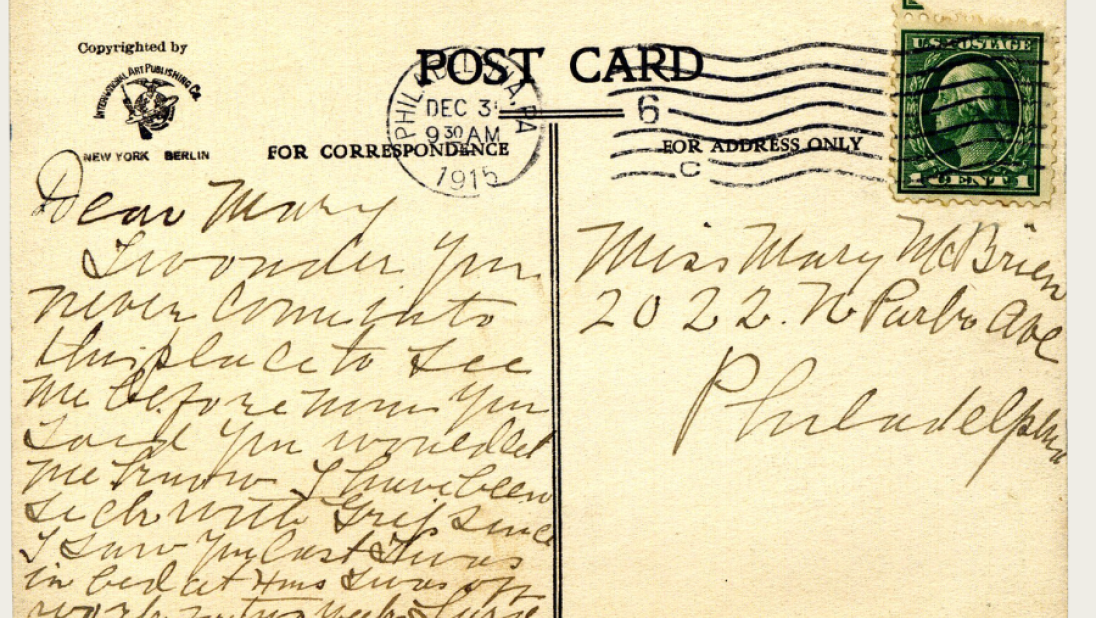 Copyrighted by
INTERNATIONAL ART PUBLISHING Co.
NEW YORK BERLIN
POST CARD
PHILADELPHIA, PA
DEC 31
9 30 AM
1915
6
C
U.S. POSTAGE
1 CENT 1
FOR CORRESPONDENCE
FOR ADDRESS ONLY
Dear Mary
I wonder you
never come into
this place to see
me before now you
said you would let
me know I have been
sick with Grip since
I saw you last I was
in bed at I was off
work
Miss Mary McBrien
2022. N Park Ave
Philadelphia